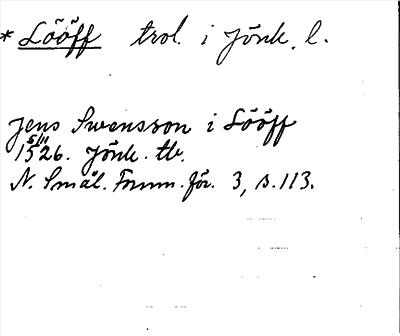 * Lööff trol. i Jönk. l.
Jens Swensson i Lööff
5/11
1526. Jönk. tb.
N. Smål. Fornm. för. 3, s. 113.